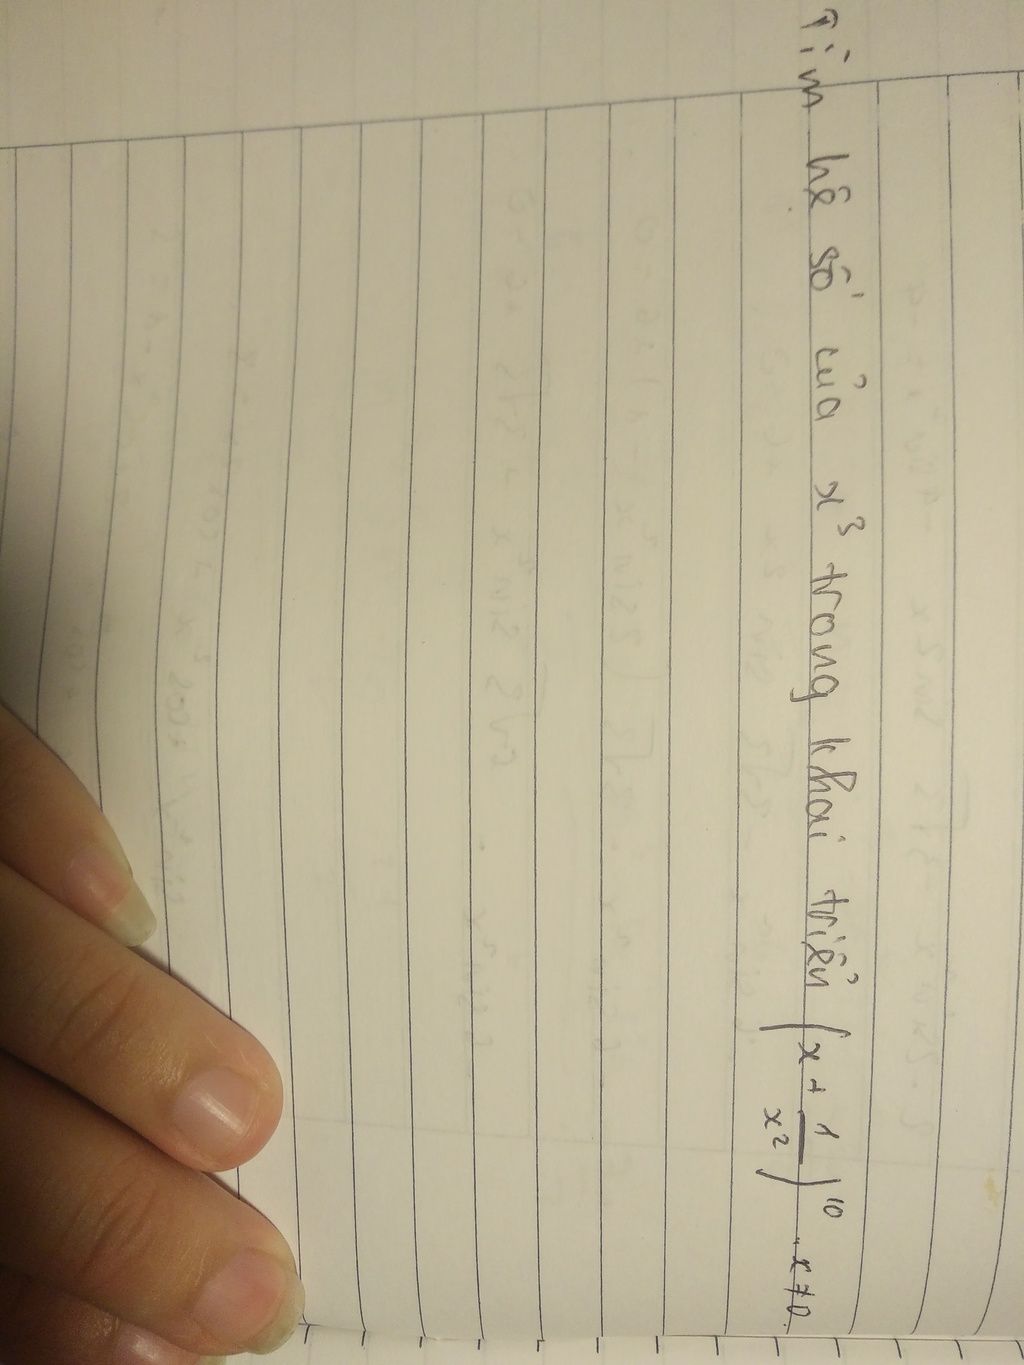 Tìm hệ số của x³ trong khai triển (x + 1/x²)¹⁰, x ≠ 0.